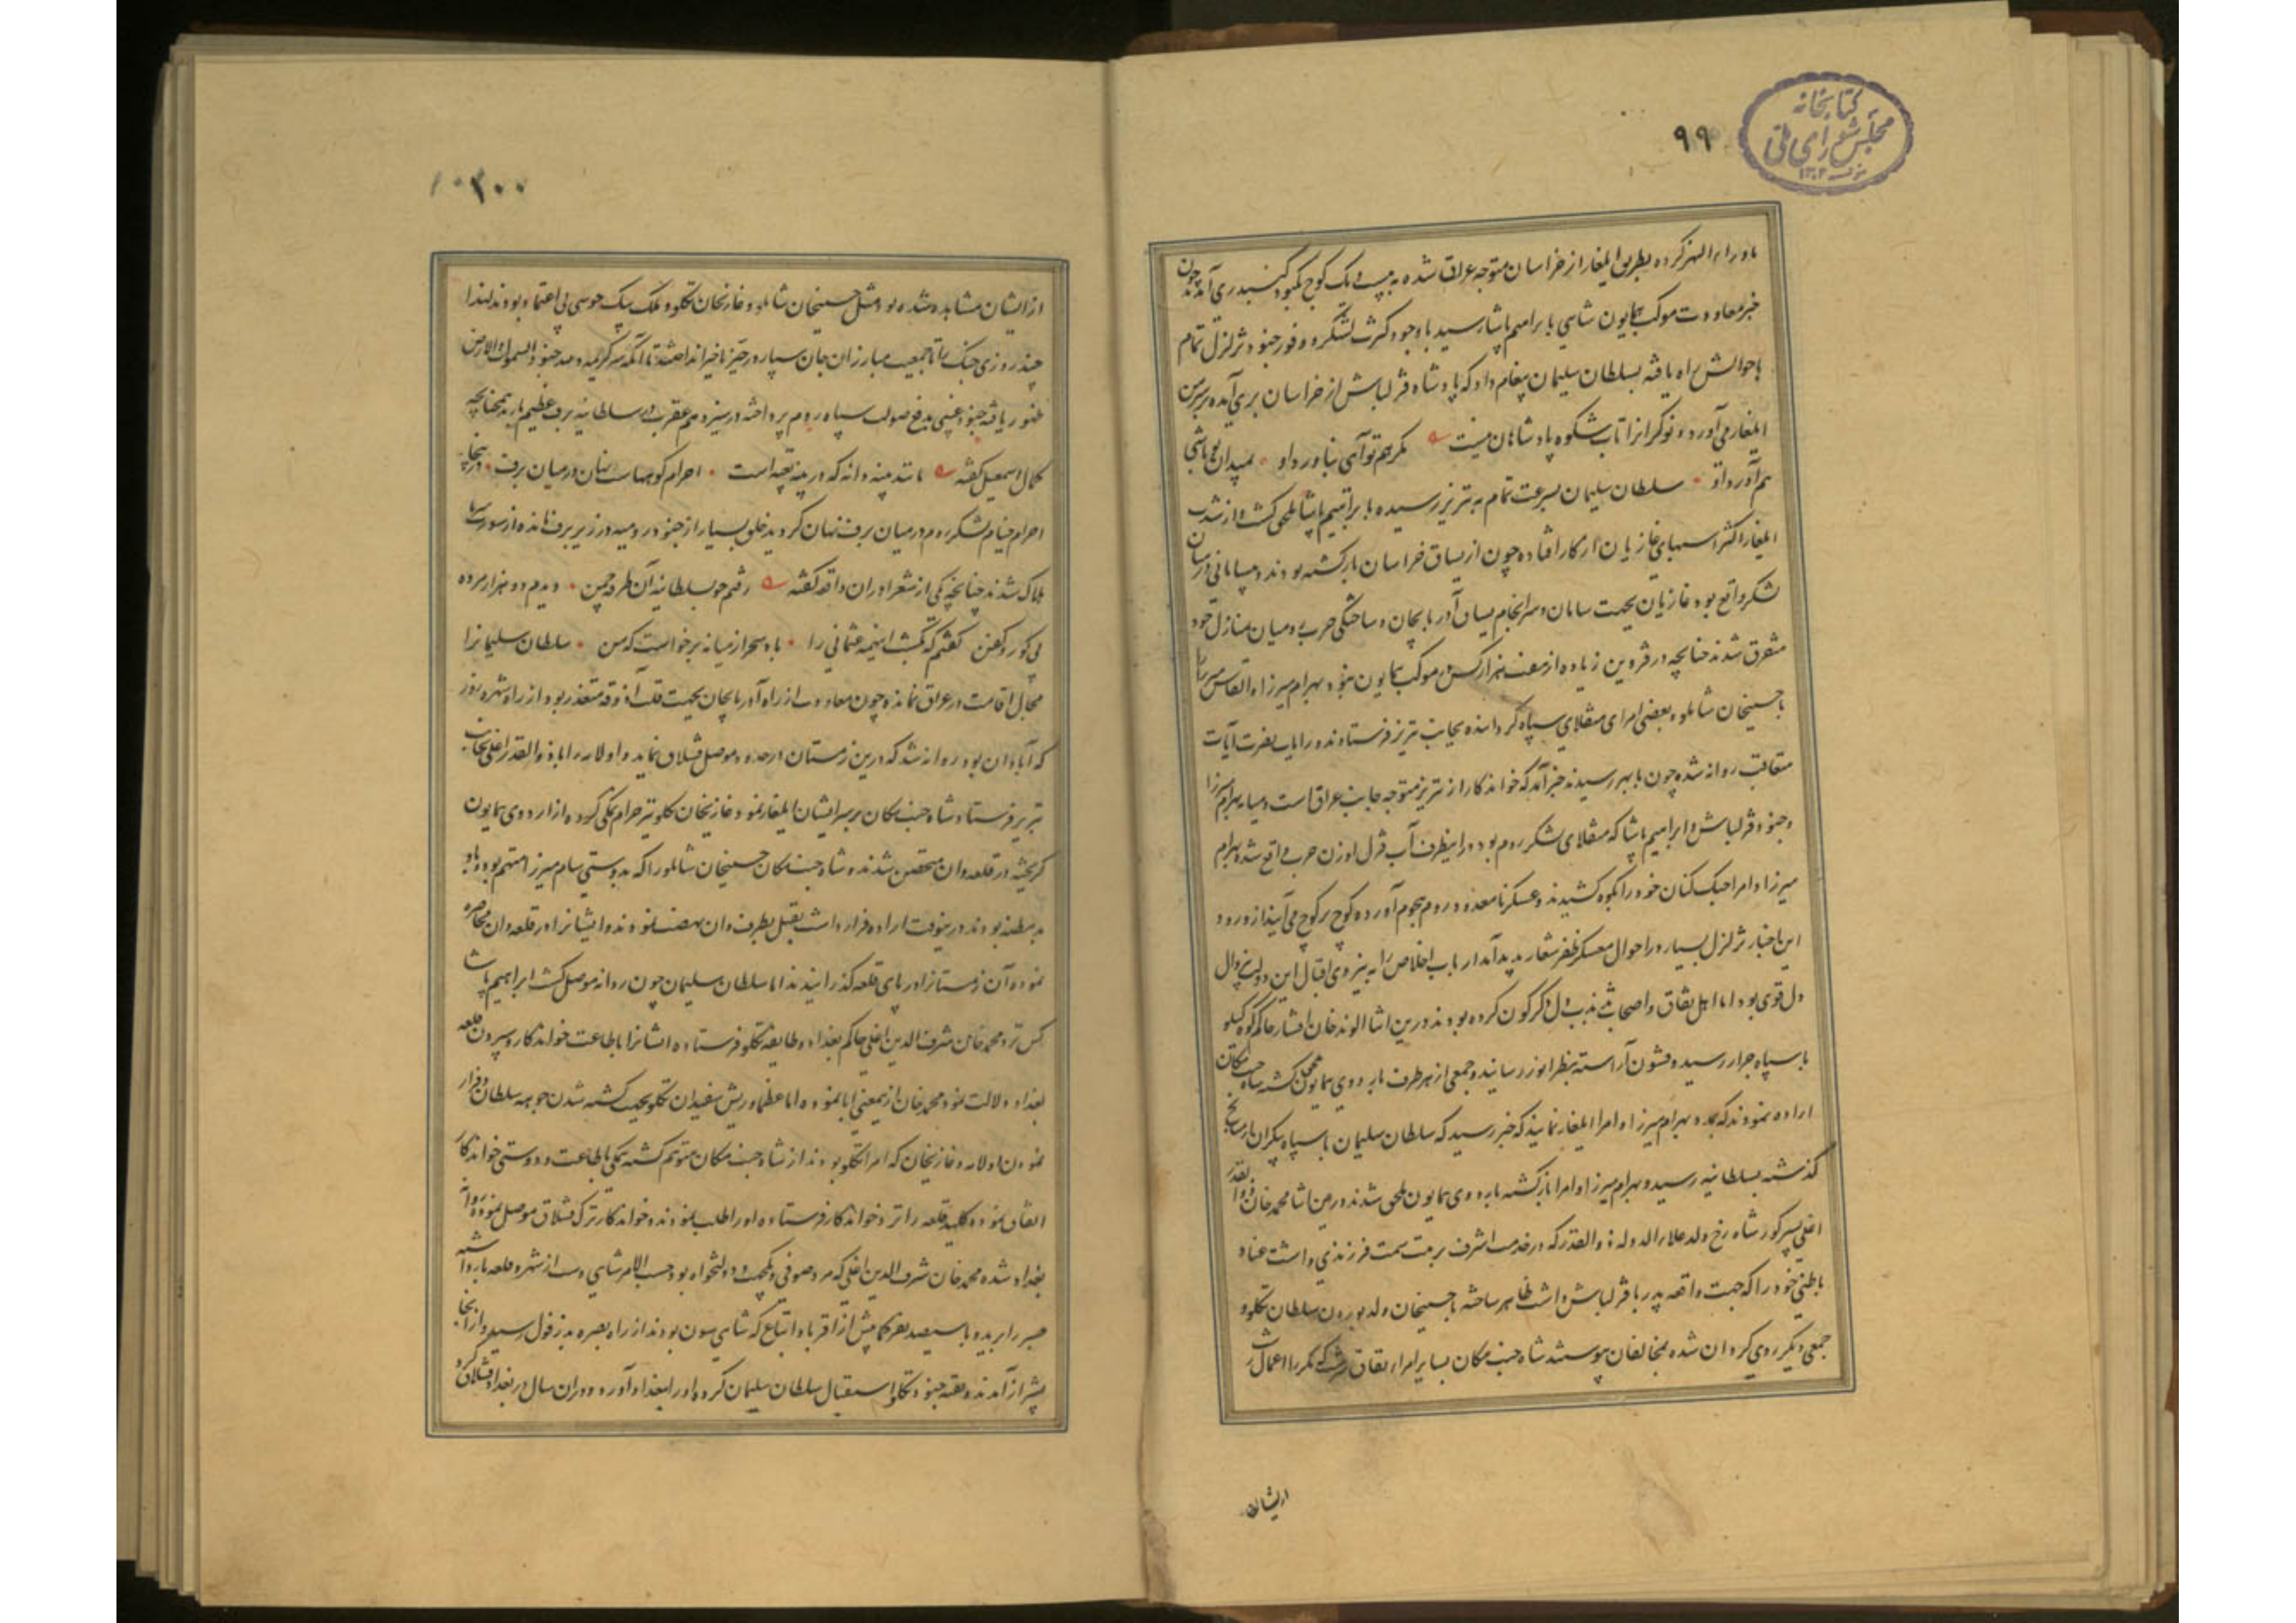 کتابخانه
مجلس شورای ملی
۹۹
ماوراء النهر کرده بطریق ایلغار از خراسان متوجه عراق شده به بیست و یک کوچ بکبود کنبد ری آمدند چون
خبر معاودت موکب همایون شاهی بابراهیم پاشا رسید با وجود کثرت لشکر و وفور جنود تزلزل تمام
باحوالش راه یافته بسلطان سلیمان پیغام داد که پادشاه قزلباش از خراسان بری آمده بر سر من
ایلغار می آورد و نوکرانرا تاب شکوه پادشاهان نیست مکر هم تو آیی بناورد او بمیدان تو باشی
هم آورد او سلطان سلیمان بسرعت تمام به تبریز رسیده بابراهیم پاشا ملحق کشت و از شدت
ایلغار اکثر اسبهای غازیان از کار افتاده چون از یساق خراسان بازکشته بودند و بیسامانی در میان
لشکر واقع بود غازیان بجهت سامان و سرانجام یساق آذربایجان و ساختکی حرب بمیان منازل خود
متفرق شدند چنانچه در قزوین زیاده از هفت هزار کس در موکب همایون نبود بهرام میرزا و القاس میرزا
با حسینخان شاملو و بعضی امرای منقلای سپاه کردانیده بجانب تبریز فرستادند و رایات نصرت آیات
متعاقب روانه شده چون بابهر رسیدند خبر آمد که خواندکار از تبریز متوجه جانب عراق است و میانه بهرام میرزا
و جنود قزلباش و ابراهیم پاشا که منقلای لشکر روم بود در اینطرف آب قزل اوزن حرب واقع شده بهرام
میرزا و امرا جنک کنان خود را بکوه کشیدند و عسکر نامعدود روم هجوم آورده کوچ بر کوچ می آیند از ورود
این اخبار تزلزل بسیار در احوال معسکر ظفر شعار پدید آمد ارباب اخلاص را به نیروی اقبال این دولت بی زوال
دل قوی بود اما اهل نفاق و اصحاب تذبذب دل دکرکون کرده بودند درین اثنا الوند خان افشار حاکم کوه کیلو
با سپاه جرار رسیده قشون آراسته بنظر انور رسانید و جمعی از هر طرف باردوی همایون ملحق کشته شاه جنت مکان
اراده نمودند که بمدد بهرام میرزا و امرا ایلغار نمایند که خبر رسید که سلطان سلیمان با سپاه بیکران از میانج
کذشته بسلطانیه رسید و بهرام میرزا و امرا بازکشته باردوی همایون ملحق شدند درین اثنا محمد خان ذوالقدر
اغلی پسر کور شاه رخ ولد علاء الدوله ذوالقدر که در خدمت اشرف برتبت سمت فرزندی داشت عناد
باطنی خود را که جهت واقعه پدر با قزلباش داشت ظاهر ساخته با حسینخان ولد بورون سلطان تکلو و
جمعی دیکر روی کردان شده بمخالفان پیوستند شاه جنت مکان بسایر امراء نفاق سرشت که مکررا اعمال زشت
از ایشان
۱۰۰
از ایشان مشاهده شده بود مثل حسینخان شاملو و غازیخان تکلو و ملک بیک خوسی بی اعتماد بودند لهذا
چند روزی جنک را تا جمعیت مبارزان جان سپار در حیز تاخیر انداختند تا آنکه سر کریمه و لله جنود السموات و الارض
ظهور یافته جنود غیبی بدفع صولت سپاه روم پرداخته در سیزدهم عقرب در سلطانیه برف عظیم بارید چنانچه
کمال اسمعیل کفته مانند پنبه دانه که در پنبه تعبیه است اجرام کوههاست نهان در میان برف در آنجا نیز
اجرام خیام لشکر روم در میان برف نهان کردید خلق بسیار از جنود رومیه در زیر برف مانده از سورت سرما
هلاک شدند چنانچه یکی از شعرا در ان واقعه کفته رفتم چو بسلطانیه آن طرفه چمن دیدم دو هزار مرده
بی کور و کفن کفتم که بکشت اینهمه عثمانی را باد سحر از میانه برخواست که من سلطان سلیمانرا
مجال اقامت در عراق نمانده چون معاودت از راه آذربایجان بجهت قلت آذوقه متعذر بود از راه شهره زور
که آبادان بود روانه شد که درین زمستان در حدود موصل قشلاق نماید و اولامه را با ذوالقدر اغلی بجانب
تبریز فرستاد شاه جنت مکان بر سر ایشان ایلغار نمود غازیخان تکلو نیز حرام نمکی کرده از اردوی همایون
کریخته در قلعه وان متحصن شدند و شاه جنت مکان حسینخان شاملو را که بدوستی سام میرزا متهم بود و باو
بدمظنه بودند درینوقت اراده فرار داشت بقتل بطرف وان نهضت نمودند و ایشانرا در قلعه وان محاصره
نموده آن زمستانرا در پای قلعه کذرانیدند اما سلطان سلیمان چون روانه موصل کشت ابراهیم پاشا
کس نزد محمد خان شرف الدین اغلی حاکم بغداد و طایفه تکلو فرستاده ایشانرا باطاعت خواندکار و سپردن قلعه
بغداد دلالت نمود محمد خان از اینمعنی ابا نموده اما عظما و ریش سفیدان تکلو بجهت کشته شدن چوهه سلطان و فرار
نمودن اولامه و غازیخان که امراء تکلو بودند از شاه جنت مکان متوهم کشته بکی باطاعت و دوستی خواندکار
اتفاق نموده کلید قلعه را نزد خواندکار فرستاده او را طلب نمودند و خواندکار ترک قشلاق موصل نموده روانه
بغداد شده محمد خان شرف الدین اغلی که مرد صوفی و یکجهت و دولتخواه بود حسب الامر شاهی دست از شهر و قلعه باز داشته
جسر را بریده با سیصد نفر کما بیش از اقربا و اتباع که شاهی سون بودند از راه بصره بدزفول رسید و از آنجا
بشیراز آمدند و بقیه جنود تکلو استقبال سلطان سلیمان کرده او را ببغداد آوردند و در ان سال در بغداد قشلاق کرد